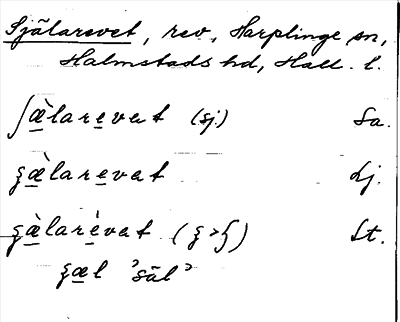 Själarevet, rev, Harplinge sn,
Halmstads hd, Hall. l.
ʃæ̀larevet (sj.) Sa.
ʒæ̀larevet Lj.
ʒàlarèvet (ʒ>ʒ) St.
ʒæl 'säl'